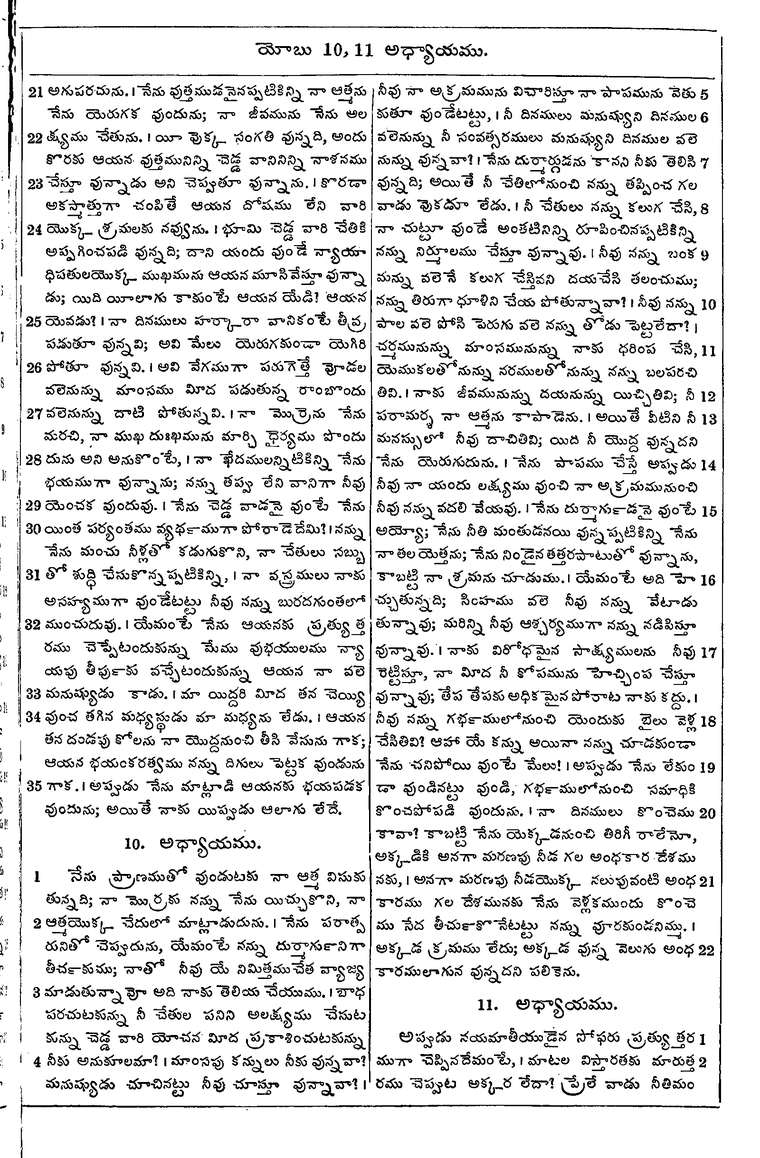 యోబు 10, 11 అధ్యాయము.
21 అగుపరచును. । నేను వుత్తముడనైనప్పటికిన్ని నా ఆత్మను
నేను యెరుగక వుందును; నా జీవమును నేను అల
22 క్ష్యము చేతును. । యీ వొక్క సంగతి వున్నది, అందు
కొరకు ఆయన వుత్తమునిన్ని చెడ్డ వానినిన్ని నాశనము
23 చేస్తూ వున్నాడు అని చెప్పుతూ వున్నాను. । కొరడా
అకస్మాత్తుగా చంపితే ఆయన దోషము లేని వారి
24 యొక్క శ్రమలకు నవ్వును. । భూమి చెడ్డ వారి చేతికి
అప్పగించపడి వున్నది; దాని యందు వుండే న్యాయా
ధిపతులయొక్క ముఖమును ఆయన మూసివేస్తూ వున్నా
డు; యిది యీలాగు కాకుంటే ఆయన యేడి? ఆయన
25 యెవడు? । నా దినములు హర్కారా వానికంటే తీవ్ర
పడుతూ వున్నవి; అవి మేలు యెరుగకుండా యెగిరి
26 పోతూ వున్నవి. । అవి వేగముగా పరుగెత్తే వోడల
వలెనున్ను మాంసము మీద పడుతున్న రాంబొందు
27 వలెనున్ను దాటి పోతున్నవి. । నా మొర్రెను నేను
మరచి, నా ముఖ దుఃఖమును మార్చి ధైర్యము పొందు
28 దును అని అనుకొంటే, । నా ఖేదములన్నిటికిన్ని నేను
భయముగా వున్నాను; నన్ను తప్పు లేని వానిగా నీవు
29 యెంచక వుందువు. । నేను చెడ్డ వాడనై వుంటే నేను
30 యింత పర్యంతము వ్యర్థముగా పోరాడెదేమి? । నన్ను
నేను మంచు నీళ్లతో కడుగుకొని, నా చేతులు సబ్బు
31 తో శుద్ధి చేసుకొన్నప్పటికిన్ని, । నా వస్త్రములు నాకు
అసహ్యముగా వుండేటట్టు నీవు నన్ను బురదగుంతలో
32 ముంచుదువు. । యేమంటే నేను ఆయనకు ప్రత్యుత్త
రము చెప్పేటందుకున్ను మేము వుభయులము న్యా
యపు తీర్పుకు వచ్చేటందుకున్ను ఆయన నా వలె
33 మనుష్యుడు కాడు. । మా యిద్దరి మీద తన చెయ్యి
34 వుంచ తగిన మధ్యస్థుడు మా మధ్యను లేడు. । ఆయన
తన దండపు కోలను నా యొద్దనుంచి తీసి వేసును గాక;
ఆయన భయంకరత్వము నన్ను దిగులు పెట్టక వుండును
35 గాక. । అప్పుడు నేను మాట్లాడి ఆయనకు భయపడక
వుందును; అయితే నాకు యిప్పుడు ఆలాగు లేదే.
10. అధ్యాయము.
1 నేను ప్రాణముతో వుండుటకు నా ఆత్మ విసుకు
తున్నది; నా మొర్రకు నన్ను నేను యిచ్చుకొని, నా
2 ఆత్మయొక్క చేదులో మాట్లాడుదును. । నేను పరాత్ప
రునితో చెప్పుదును, యేమంటే నన్ను దుర్మార్గునిగా
తీర్చకుము; నాతో నీవు యే నిమిత్తముచేత వ్యాజ్య
3 మాడుతున్నావో అది నాకు తెలియ చేయుము. । బాధ
పరచుటకున్ను నీ చేతుల పనిని అలక్ష్యము చేసుట
కున్ను చెడ్డ వారి యోచన మీద ప్రకాశించుటకున్ను
4 నీకు అనుకూలమా? । మాంసపు కన్నులు నీకు వున్నవా?
మనుష్యుడు చూచినట్టు నీవు చూస్తూ వున్నావా? ।
నీవు నా అక్రమమును విచారిస్తూ నా పాపమును వెతు 5
కుతూ వుండేటట్టు, । నీ దినములు మనుష్యుని దినముల 6
వలెనున్ను నీ సంవత్సరములు మనుష్యుని దినముల వలె
నున్ను వున్నవా? । నేను దుర్మార్గుడను కానని నీకు తెలిసి 7
వున్నది; అయితే నీ చేతిలోనుంచి నన్ను తప్పించ గల
వాడు వొకడూ లేడు. । నీ చేతులు నన్ను కలుగ చేసి, 8
నా చుట్టూ వుండే అంతటినిన్ని రూపించినప్పటికిన్ని
నన్ను నిర్మూలము చేస్తూ వున్నావు. । నీవు నన్ను బంక 9
మన్ను వలెనే కలుగ చేస్తివని దయచేసి తలంచుము;
నన్ను తిరుగా ధూళిని చేయ పోతున్నావా? । నీవు నన్ను 10
పాల వలె పోసి పెరుగు వలె నన్ను తోడు పెట్టలేదా? ।
చర్మమునున్ను మాంసమునున్ను నాకు ధరింప చేసి, 11
యెముకలతోనున్ను నరములతోనున్ను నన్ను బలపరచి
తివి. । నాకు జీవమునున్ను దయనున్ను యిచ్చితివి; నీ 12
పరామర్శ నా ఆత్మను కాపాడెను. । అయితే వీటిని నీ 13
మనస్సులో నీవు దాచితివి; యిది నీ యొద్ద వున్నదని
నేను యెరుగుదును. । నేను పాపము చేస్తే అప్పుడు 14
నీవు నా యందు లక్ష్యము వుంచి నా అక్రమమునుంచి
నీవు నన్ను వదలి వేయవు. । నేను దుర్మార్గుడనై వుంటే 15
అయ్యో; నేను నీతి మంతుడనయి వున్నప్పటికిన్ని నేను
నా తల యెత్తను; నేను నిండైన తత్తరపాటుతో వున్నాను,
కాబట్టి నా శ్రమను చూడుము. । యేమంటే అది హె 16
చ్చుతున్నది; సింహము వలె నీవు నన్ను వేటాడు
తున్నావు; మరిన్ని నీవు ఆశ్చర్యముగా నన్ను నడిపిస్తూ
వున్నావు. । నాకు విరోధమైన సాక్ష్యములను నీవు 17
రెట్టిస్తూ, నా మీద నీ కోపమును హెచ్చింప చేస్తూ
వున్నావు; తేప తేపకు అధికమైన పోరాట నాకు కద్దు. ।
నీవు నన్ను గర్భములోనుంచి యెందుకు బైలు వెళ్ల 18
చేసితివి? ఆహా యే కన్ను అయినా నన్ను చూడకుండా
నేను చనిపోయి వుంటే మేలు! । అప్పుడు నేను లేకుం 19
డా వుండినట్టు వుండి, గర్భములోనుంచి సమాధికి
కొంచపోపడి వుందును. । నా దినములు కొంచెము 20
కావా? కాబట్టి నేను యెక్కడనుంచి తిరిగీ రాలేమో,
అక్కడికి అనగా మరణపు నీడ గల అంధకార దేశము
నకు, । అనగా మరణపు నీడయొక్క నలుపువంటి అంధ 21
కారము గల దేశమునకు నేను వెళ్లకముందు కొంచె
ము సేద తీర్చుకొనేటట్టు నన్ను వూరకుండనిమ్ము. ।
అక్కడ క్రమము లేదు; అక్కడ వున్న వెలుగు అంధ 22
కారములాగున వున్నదని పలికెను.
11. అధ్యాయము.
అప్పుడు నయమాతీయుడైన సోఫరు ప్రత్యుత్తర 1
ముగా చెప్పినదేమంటే, । మాటల విస్తారతకు మారుత్త 2
రము చెప్పుట అక్కర లేదా? ప్రేలే వాడు నీతిమం